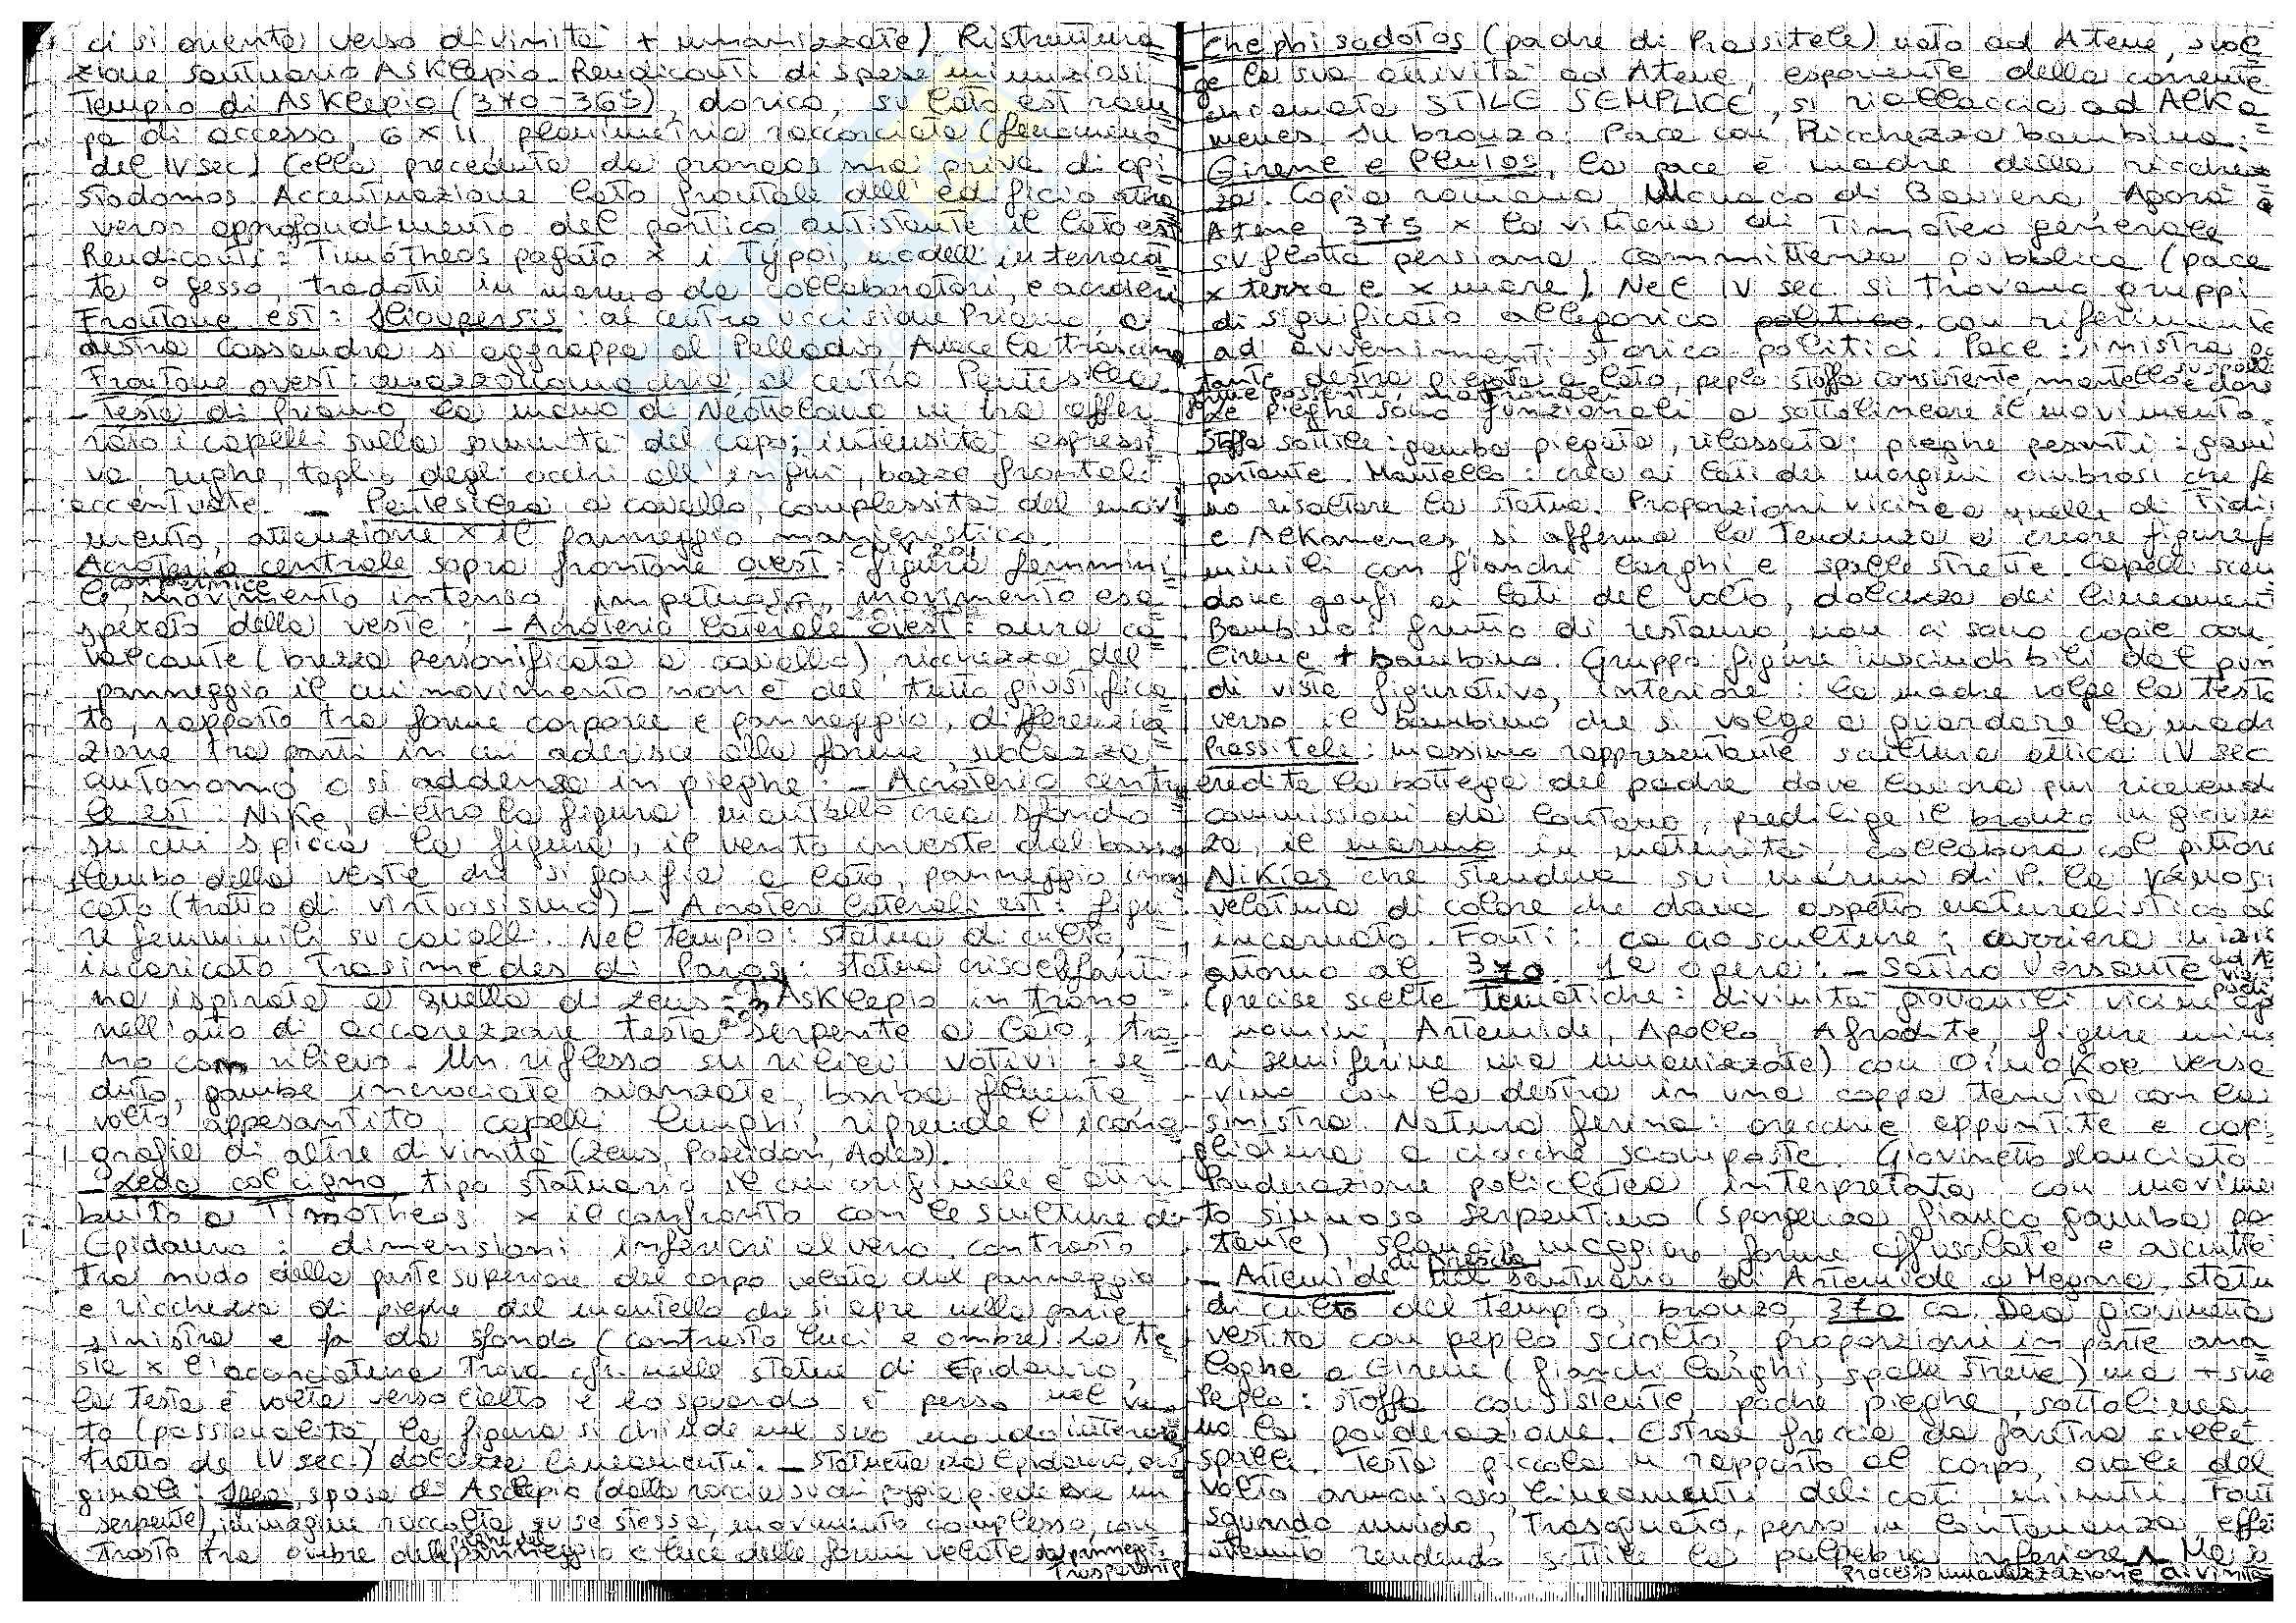 ci si orienta verso divinità + umanizzate) Ristruttura
zione santuario Asklepio. Rendiconti di spese minuziosi
Tempio di Asklepio (370-365), dorico, su lato est ram
pa di accesso, 6 x 11, planimetria raccorciata (fenomeno
del IV sec) Cella preceduta da pronaos ma priva di opi
stodomos Accentuazione lato frontale dell'edificio attra
verso approfondimento del portico antistante il lato est
Rendiconti: Timòtheos pagato x i Typoi, modelli in terracot
ta o gesso, tradotti in marmo da collaboratori, e acroteri
Frontone est: Ilioupersis: al centro uccisione Priamo, a
destra Cassandra si aggrappa al Palladio Aiace la trascina
Frontone ovest: amazzonomachia al centro Pentesilea
- Testa di Priamo, la mano di Neottolemo ha affer
rato i capelli sulla sommità del capo; intensità espressi
va, rughe, taglio degli occhi all'ingiù, bozze frontali
accentuate. - Pentesilea a cavallo, complessità del movi
mento, attenzione x il panneggio manieristico.
Acroterio centrale sopra frontone ovest: figura femmini
le, movimento intenso, impetuoso, movimento esa
sperato della veste; - Acroterio laterale ovest: aura ca
valcante (brezza personificata a cavallo) ricchezza del
panneggio il cui movimento non è del tutto giustifica
to, rapporto tra forme corporee e panneggio, differenzia
zione tra parti in cui aderisce alle forme, svolazza
autonomo o si addensa in pieghe; - Acroterio centra
le est: Nike, dietro la figura mantello crea sfondo
su cui spicca la figura, il vento investe dal basso
lembo della veste che si gonfia a lato, panneggio
cato (tratto di virtuosismo) - Acroteri laterali est: figu
re femminili su cavalli. Nel tempio: statua di culto,
incaricato Trasimedes di Paros: statua crisoelefanti
na ispirata a quella di Zeus Asklepio in trono
nell'atto di accarezzare testa serpente a lato, tro
no con rilievo. Un riflesso su rilievi votivi: se
duto, gambe incrociate avanzate, barba fluente,
volto appesantito, capelli lunghi, riprende l'icono
grafia di altre divinità (Zeus, Poseidon, Ades).
- Leda col cigno, tipo statuario il cui originale è attri
buito a Timòtheos x il confronto con le sculture di
Epidauro: dimensioni inferiori al vero, contrasto
tra nudo della parte superiore del corpo velata dal panneggio
e ricchezza di pieghe del mantello che si apre nella parte
sinistra e fa da sfondo (contrasto luci e ombre) La te
sta x l'acconciatura trova cfr. nelle statue di Epidauro,
la testa è volta verso l'alto e lo sguardo è perso nel vuo
to (passionalità, la figura si chiude nel suo mondo interiore
tratto de IV sec.) dolcezza lineamenti. - Statuetta da Epidauro, ori
ginale: Igea, sposa di Asklepio (dalla roccia su cui poggia piede esce un
serpente), immagine raccolta su se stessa, movimento complesso, con
trasto tra ombre delle pieghe del panneggio e luce delle forme velate da panneggi
trasparenti
Chephisodotos (padre di Prassitele) nato ad Atene, svol
ge la sua attività ad Atene, esponente della corrente
chiamata STILE SEMPLICE, si riallaccia ad Alka
menes. Su bronzo: Pace con Ricchezza bambina:
Eirene e Plutos, la pace è madre della ricchez
za. Copia romana Monaco di Baviera, Agorà
Atene 375 x la vittoria di Timoteo generale
su flotta persiana committenza pubblica (pace
x terra e x mare). Nel IV sec. si trovano gruppi
di significato allegorico con riferimento
ad avvenimenti storico politici. Pace: sinistra por
tante, destra piegata a lato, peplo stoffa consistente, mantello su spalle e dorso
forme possenti, matronali
Le pieghe sono funzionali a sottolineare il movimento
Stoffa sottile: gamba piegata, rilassata; pieghe pesanti: gam
portante. Mantello: crea ai lati dei margini ombrosi che fa
no risaltare la statua. Proporzioni vicine a quelle di Fidi
e Alkamenes, si afferma la tendenza a creare figure f
minili con fianchi larghi e spalle strette. Capelli scen
dono gonfi ai lati del volto, dolcezza dei lineamenti
Bambino: frutto di restauro, non ci sono copie con
Eirene + bambino. Gruppo figure inscindibili dal pun
di vista figurativo, interiore: la madre volge la testa
verso il bambino che si volge a guardare la madr
Prassitele: massimo rappresentante scultura attica IV sec
eredita la bottega del padre dove lavora pur ricevend
commissioni da lontano, predilige il bronzo in giovin
za, il marmo in maturità, collabora col pittore
Nikias che stendeva sui marmi di P. la ganosi
velatura di colore che dava aspetto naturalistico al
incarnato. Fonti: ca 60 sculture; carriera inizi
attorno al 370. 1ª opera: - Satiro Versante
(precise scelte tematiche: divinità giovanili vicine agli
uomini, Artemide, Apollo, Afrodite, figure mino
ri semiferine ma umanizzate) con Oinokoe versa
vino con la destra in una coppa tenuta con la
sinistra Natura ferina: orecchie appuntite e capi
gliatura a ciocche scomposte. Giovinetto slanciato
Ponderazione policletea interpretata con movimen
to sinuoso serpentino (sporgenza fianco gamba por
tante), slancio maggiore forme affusolate e asciutte
- Artemide di Dresda nel santuario di Artemide a Megara, statu
di culto del tempio, bronzo, 370 ca. Dea giovinetta
vestita con peplo sciolto, proporzioni in parte ana
loghe a Eirene (fianchi larghi, spalle strette) ma + sne
Peplo: stoffa consistente, poche pieghe, sottolinea
no la ponderazione. Estrae freccia da faretra sulle
spalle. Testa piccola in rapporto al corpo, ovale del
volto armonioso, lineamenti delicati, minuti. Font
sguardo umido, trasognato, perso in lontananza, effe
ottenuto rendendo sottile la palpebra inferiore
Processo umanizzazione divinità